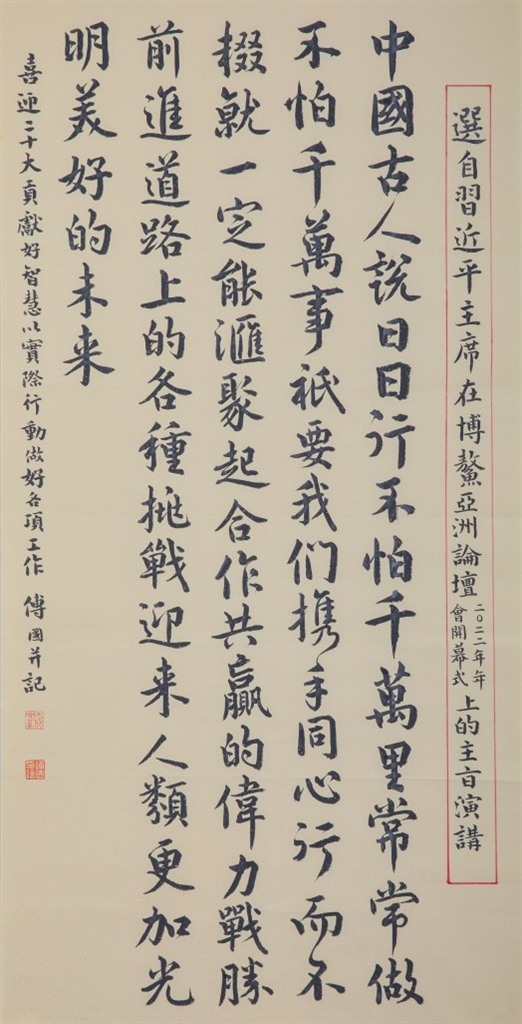 選自習近平主席在博鰲亞洲論壇二〇二二年年會開幕式上的主旨演講
中國古人說日日行不怕千萬里常常做
不怕千萬事祇要我们携手同心行而不
輟就一定能滙聚起合作共贏的偉力戰勝
前進道路上的各種挑戰迎来人類更加光
明美好的未来
喜迎二十大貢獻好智慧以實際行動做好各項工作 傅國并記